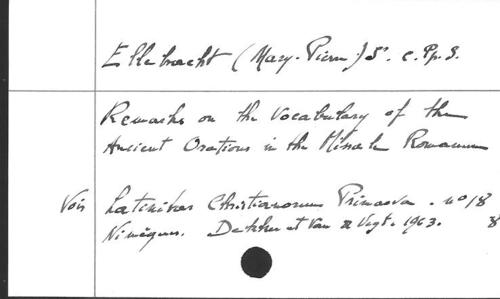 Ellebracht (Mary-Pierre) Sr. C.Pp.S.
Remarks on the Vocabulary of the
Ancient Orations in the Missale Romanum
Voir Latinitas Christianorum Primaeva. no 18
Nimègue. Dekker et Van de Vegt. 1963. 8